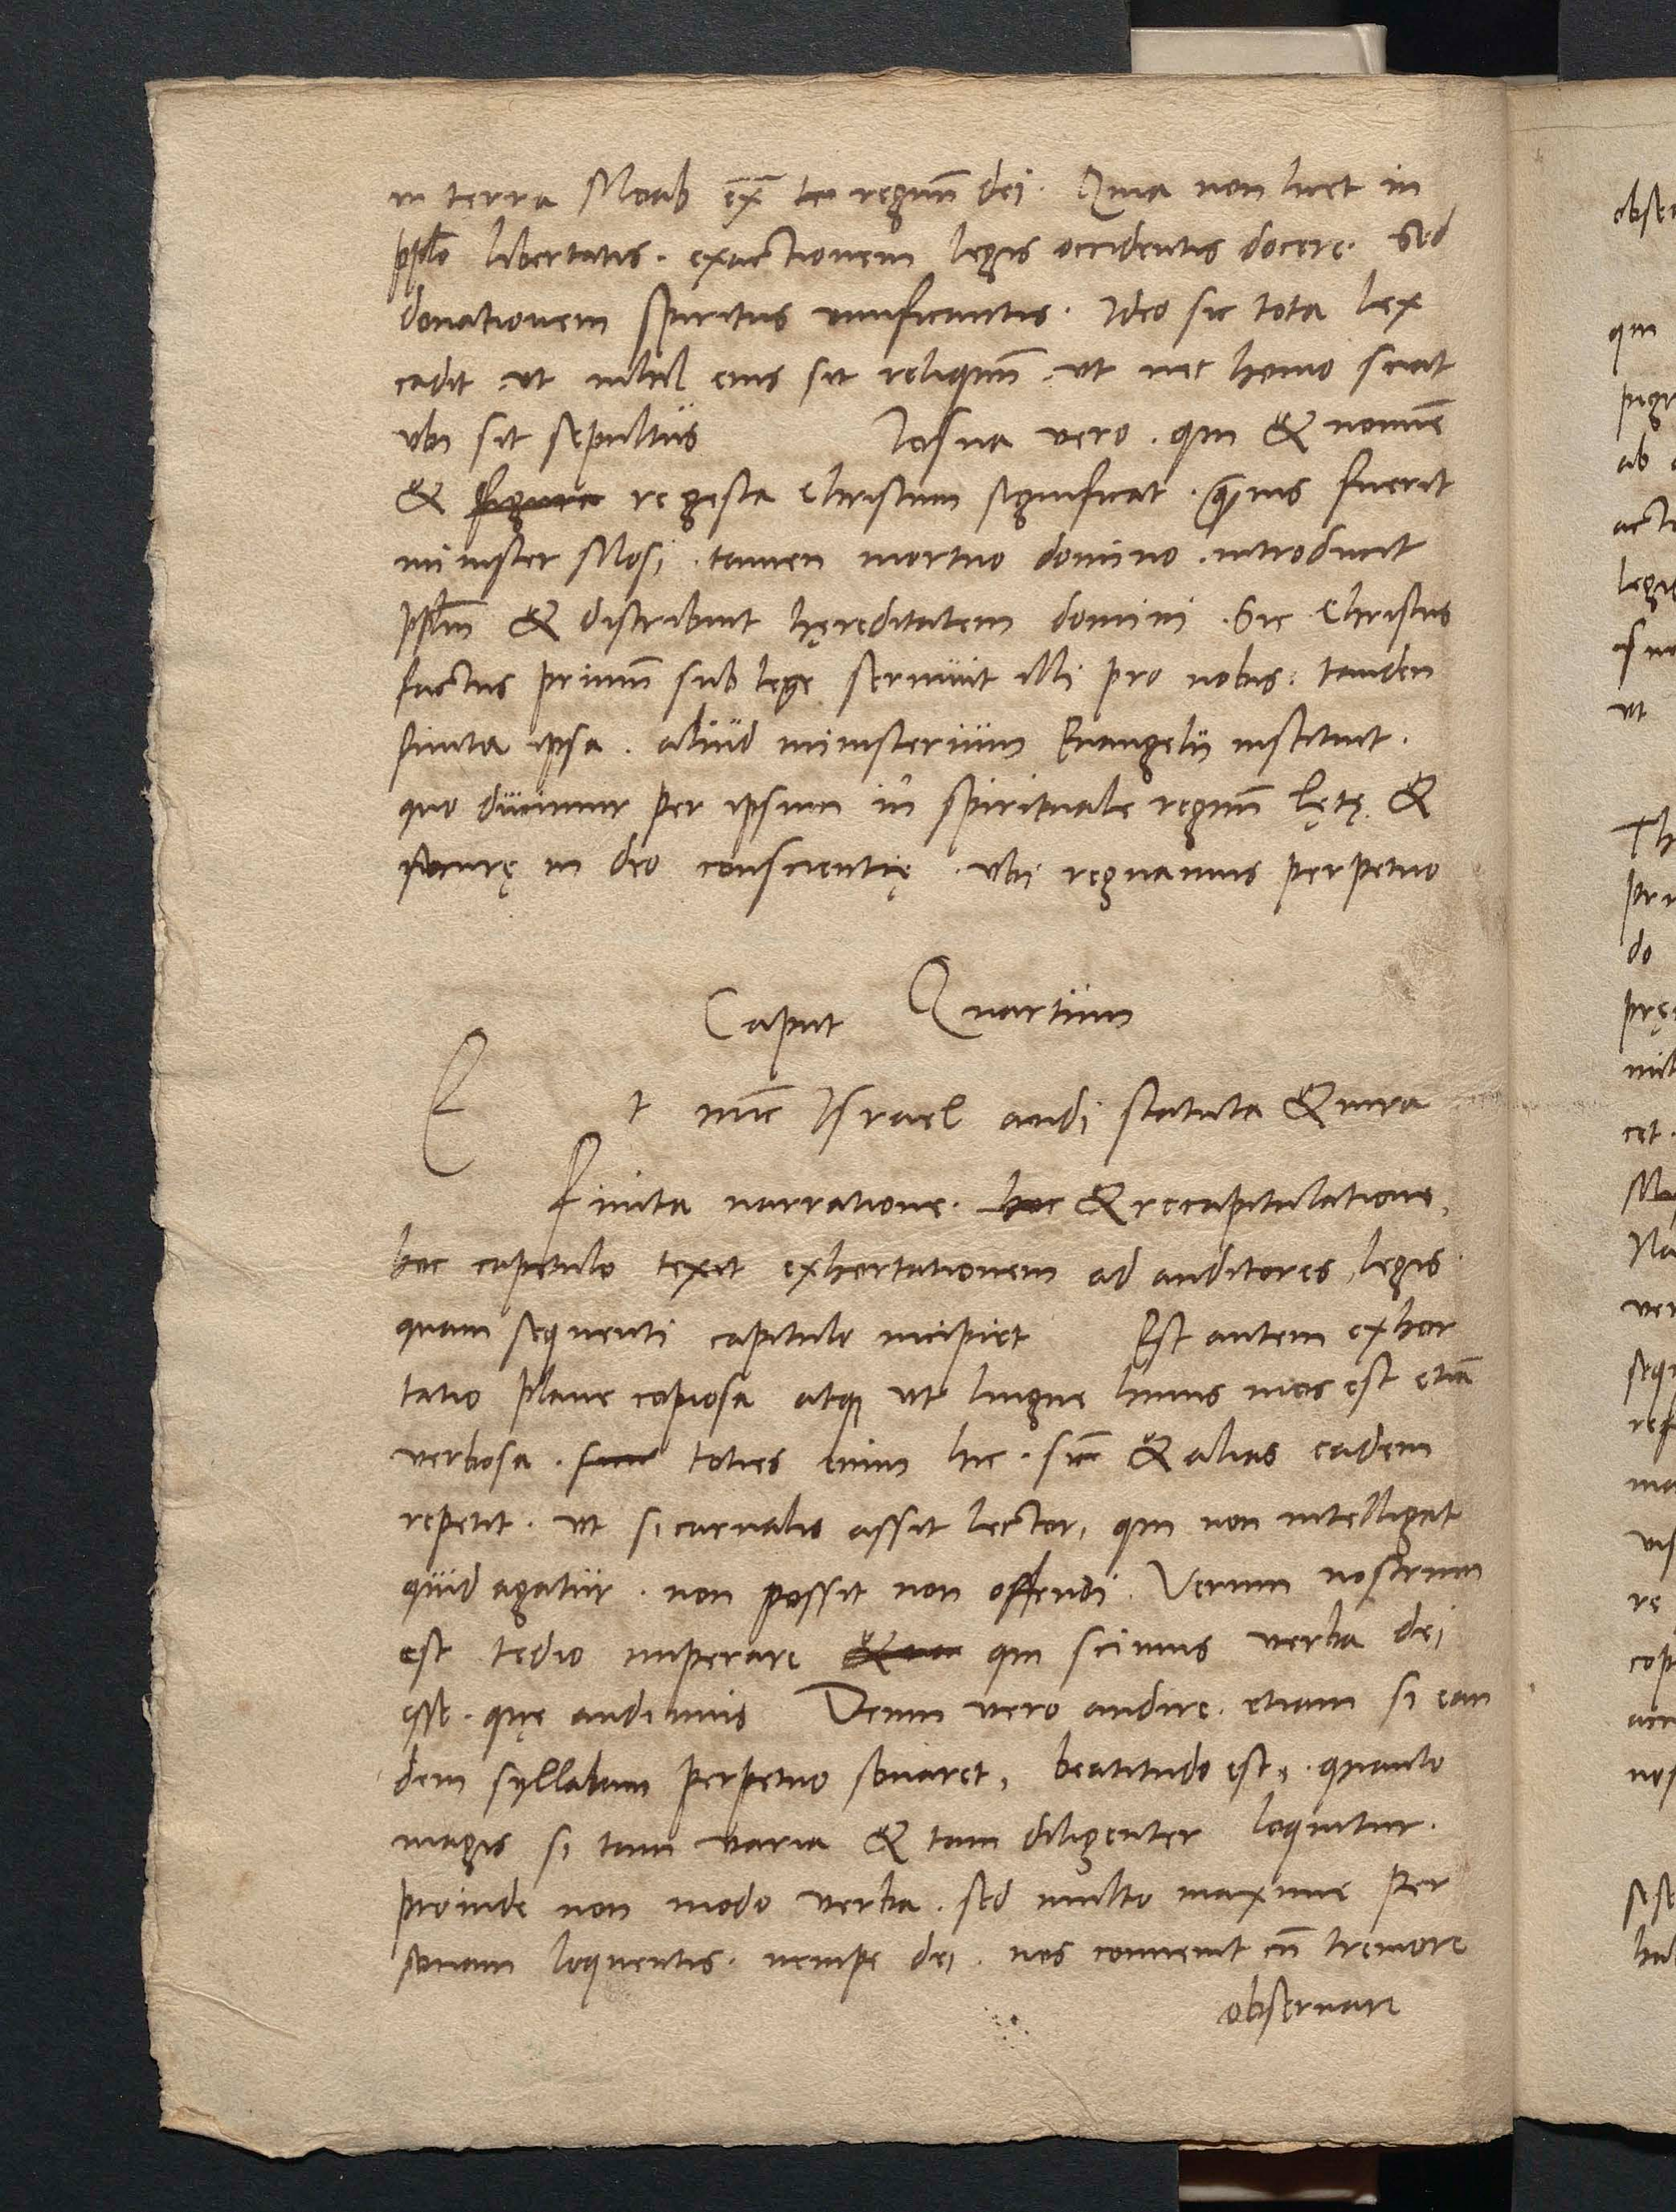 in terra Moab ex̄ā regnū dei. Quia non licet in
pplo libertatis. exactionem legis occidentis docere. Sed
donationem spiritus uiuificantis. Ideo sic tota lex
cadit. vt nihil eius sit reliquū. vt nec homo sciat
vbi sit sepultus Iosua vero. qui & nomine
& figura re gesta Christum significat. quis fuerit
minister Mosi. tamen mortuo domino. introducit
pplm & distribuit hęreditatem domini. Sic Christus
factus primū sub lege seruiuit illi pro nobis: tandem
finita ipsa. aliud ministerium Euangelij instituit.
quo ducimur per ipsum in spirituale regnū lętę &
securę in deo conscientię. vbi regnamus perpetuo
Caput Quartum
Et nūc Israel audi statuta & iura
Finita narratione. hoc & recapitulatione,
hoc capitulo texit exhortationem ad auditores legis
quam sequenti capitulo incipiet Est autem exhor
tatio plane copiosa atq ut lingue huius mos est etiā
verbosa. toties enim hic. sic & alias eadem
repetit. vt si carnalis assit lector, qui non intelligat
quid agatur. non possit non offendi. Verum nostrum
est tędio imperare qui scimus verba dei
esse. quę audimus Deum vero audire. etiam si ean
dem syllabam perpetuo sonaret, beatitudo est, . quanto
magis si tam varia & tam diligenter loquitur.
proinde non modo verba. sed multo maxime per
sonam loquentis. nempe dei. nos conuenit cū tremore
obseruare
obser
qui
ab
legis
vt
Th
do
cet.
re
nos